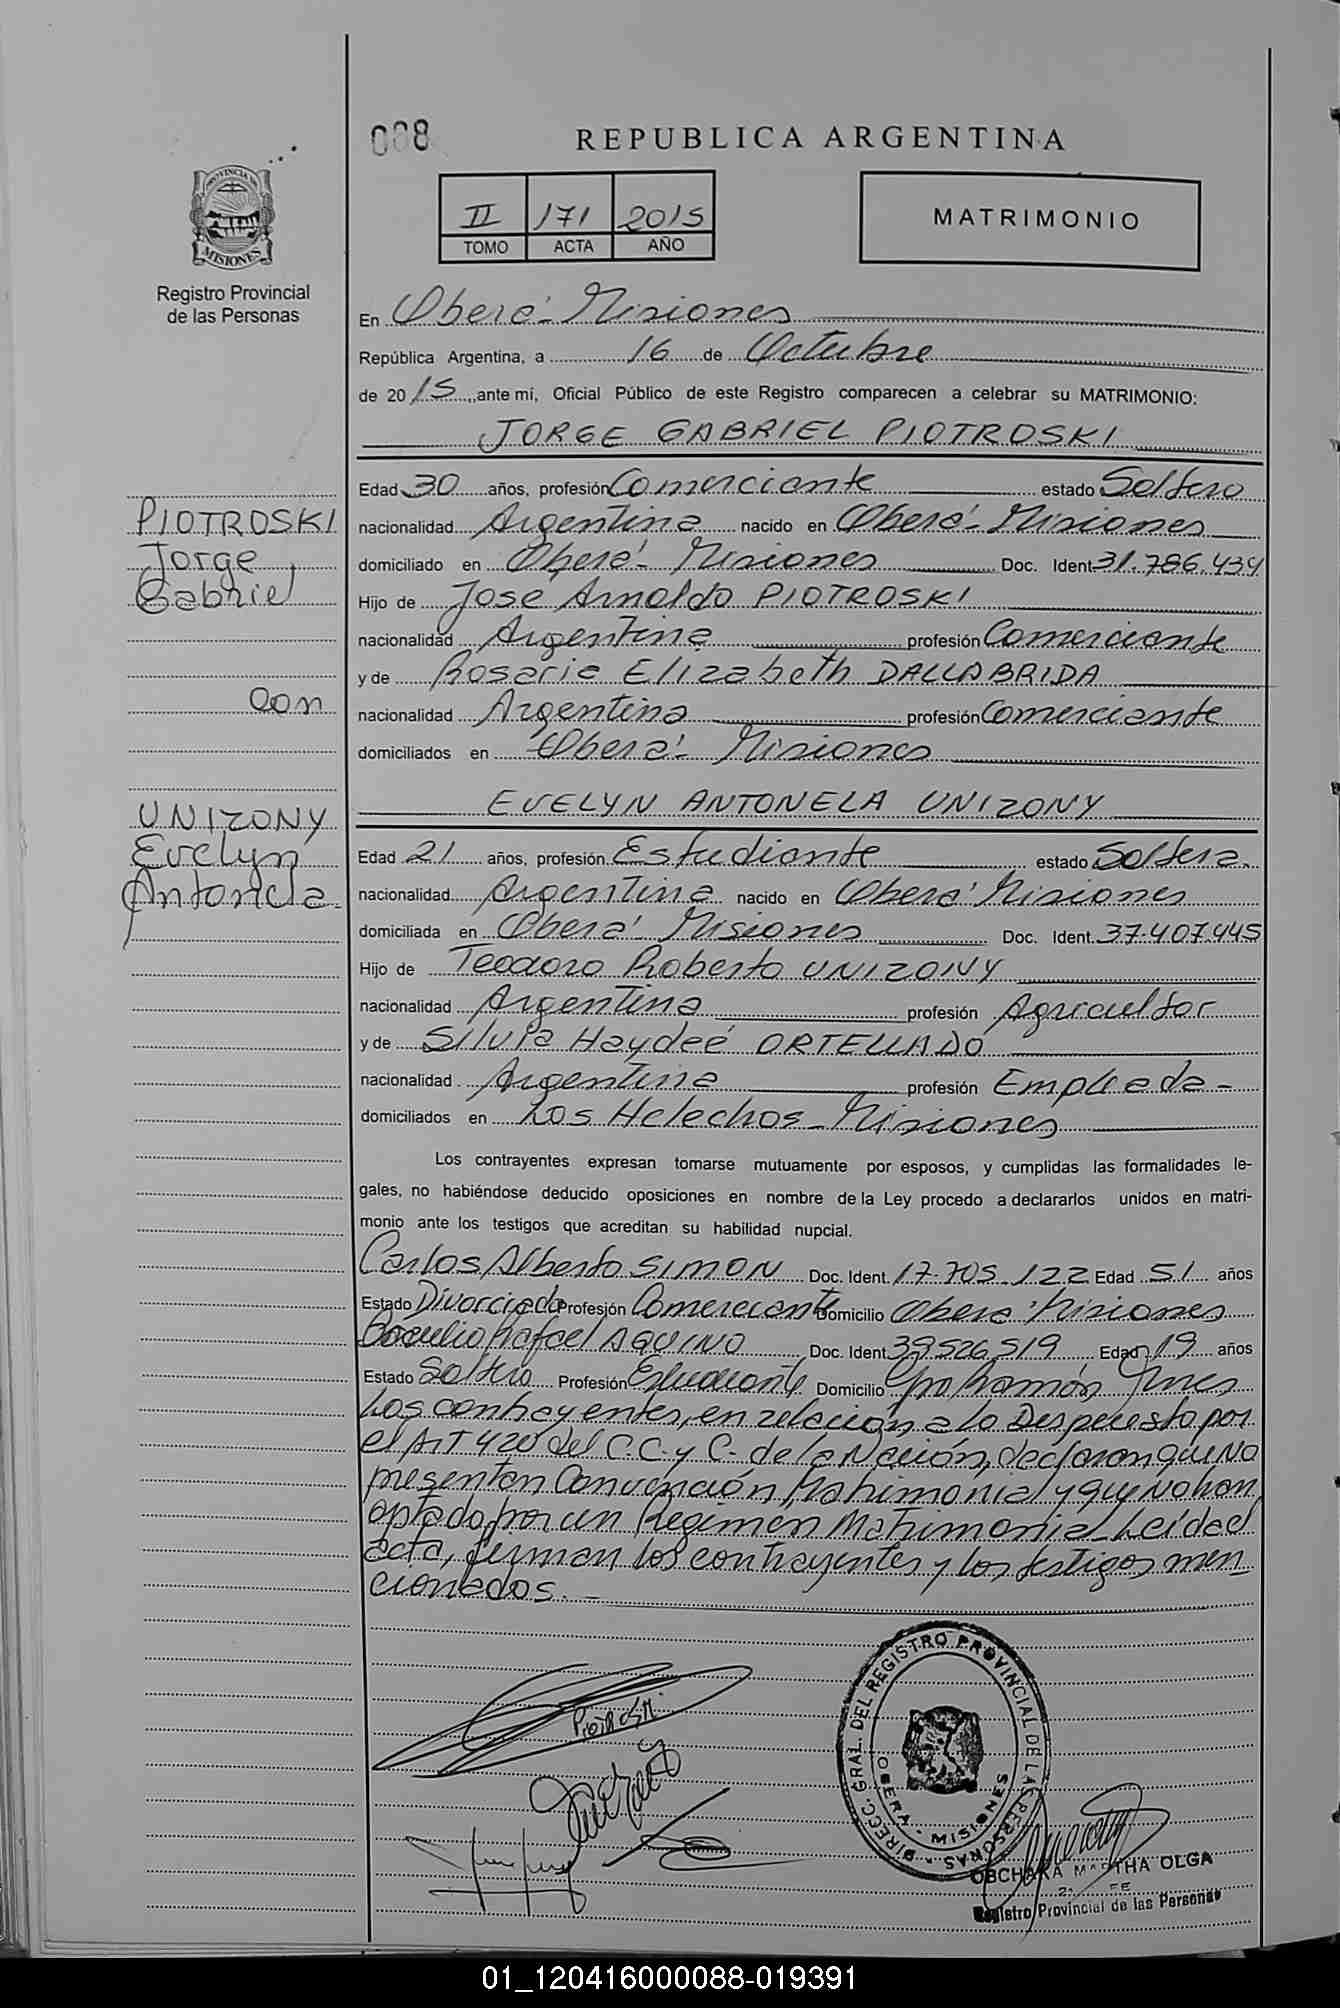 008
REPUBLICA ARGENTINA
PROVINCIA DE
MISIONES
Registro Provincial
de las Personas
II 171 2015
TOMO ACTA AÑO
MATRIMONIO
En Oberá - Misiones
República Argentina, a 16 de Octubre
de 2015, ante mí, Oficial Público de este Registro comparecen a celebrar su MATRIMONIO:
JORGE GABRIEL PIOTROSKI
Edad 30 años, profesión Comerciante estado Soltero
PIOTROSKI
Jorge
Gabriel
nacionalidad Argentina nacido en Oberá - Misiones
domiciliado en Oberá - Misiones Doc. Ident. 31.786.434
Hijo de José Arnoldo PIOTROSKI
nacionalidad Argentina profesión Comerciante
y de Rosaria Elizabeth DALLABRIDA
con
nacionalidad Argentina profesión Comerciante
domiciliados en Oberá - Misiones
EVELYN ANTONELA UNIZONY
UNIZONY
Evelyn
Antonela
Edad 21 años, profesión Estudiante estado Soltera
nacionalidad Argentina nacido en Oberá Misiones
domiciliada en Oberá Misiones Doc. Ident. 37.407.445
Hijo de Teodoro Roberto UNIZONY
nacionalidad Argentina profesión Agricultor
y de Silvia Haydeé ORTELLADO
nacionalidad Argentina profesión Empleada -
domiciliados en Los Helechos - Misiones
Los contrayentes expresan tomarse mutuamente por esposos, y cumplidas las formalidades le-
gales, no habiéndose deducido oposiciones en nombre de la Ley procedo a declararlos unidos en matri-
monio ante los testigos que acreditan su habilidad nupcial.
Carlos Alberto SIMON Doc. Ident. 17.705.122 Edad 51 años
Estado Divorciado Profesión Comerciante Domicilio Oberá Misiones
Rafael AQUINO Doc. Ident. 39.526.519 Edad 19 años
Estado Soltero Profesión Estudiante Domicilio Gdor Ramón
Los contrayentes, en relación a lo Despuesto por
el Art 420 del C.C. y C. de la Nación, declaran que No
presentan Convención Matrimonial y que No han
optado por un Régimen Matrimonial. Leída el
acta, firman los contrayentes y los testigos men
cionados. -
Piotroski
DIRECC. GRAL. DEL REGISTRO PROVINCIAL DE LAS PERSONAS
OBERA - MISIONES
OBCHARA MARTHA OLGA
Registro Provincial de las Personas
01_120416000088-019391